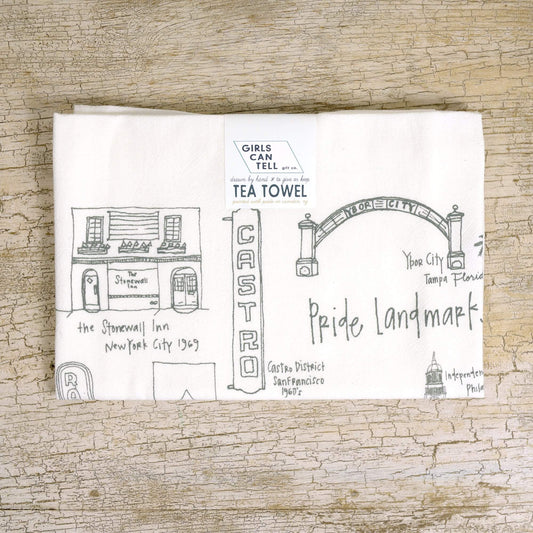 GIRLS
CAN
TELL
gift co.
drawn by hand & to give or keep
TEA TOWEL
printed with pride in camden, nj
YBOR CITY
Ybor City
Tampa Florida
The
Stonewall
Inn
the Stonewall Inn
New York City 1969
CASTRO
Castro District
San Francisco
1960's
Pride Landmark
Independen
Phila
RO